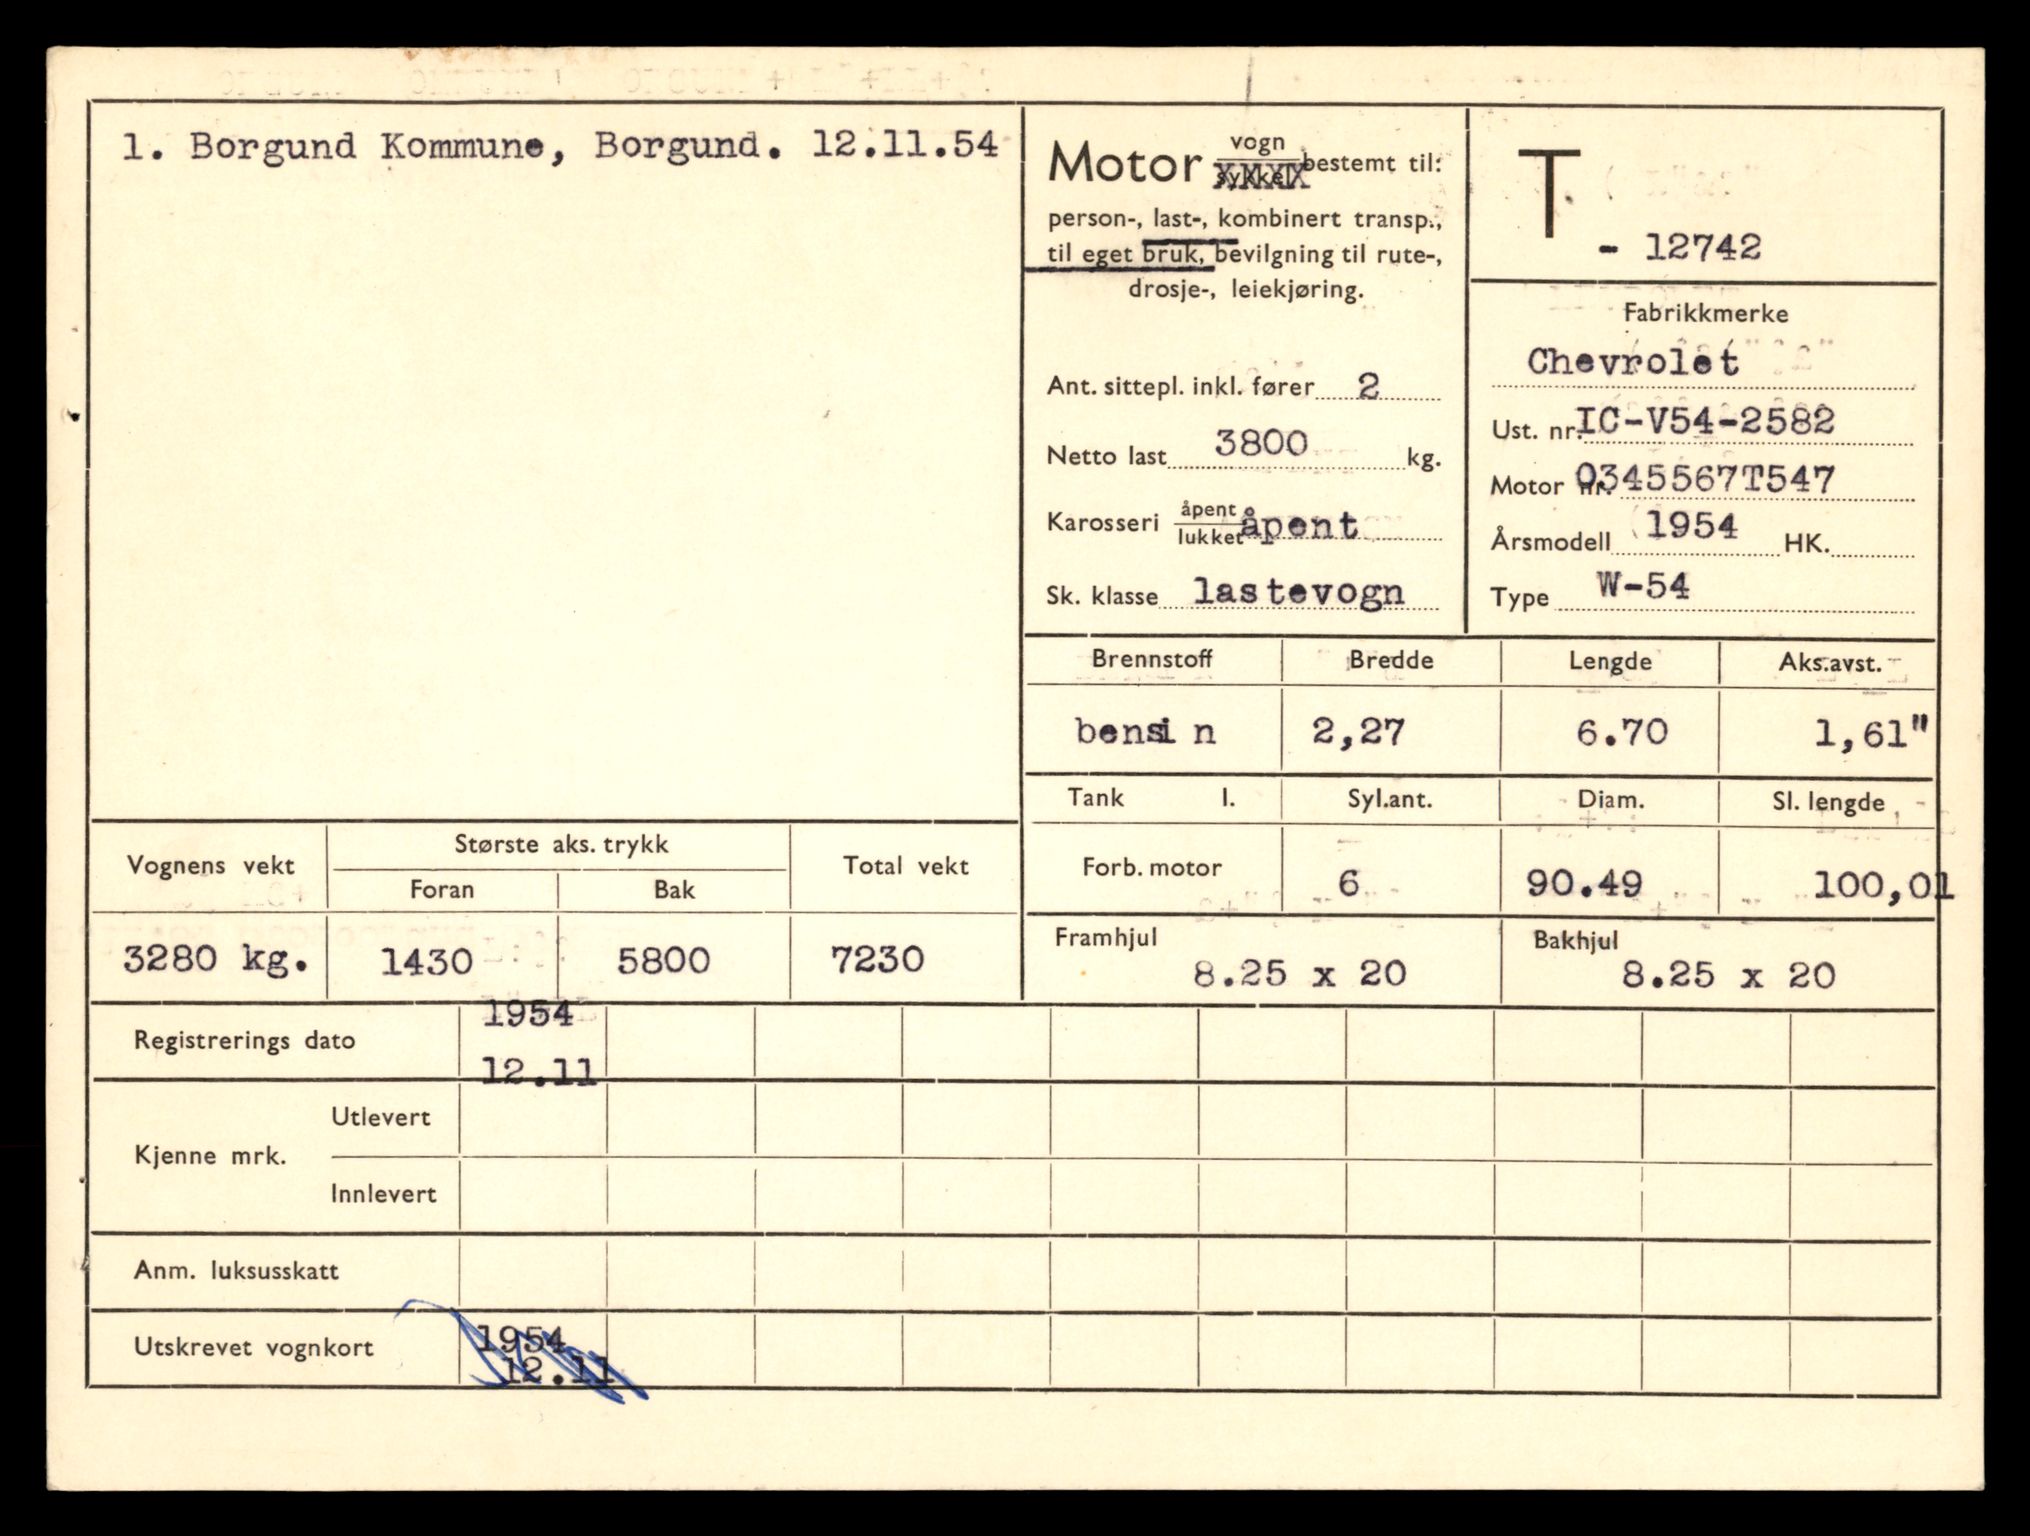 1. Borgund Kommune, Borgund. 12.11.54
Motor vogn sykkel bestemt til:
person-, last-, kombinert transp.,
til eget bruk, bevilgning til rute-,
drosje-, leiekjøring.
Ant. sittepl. inkl. fører 2
Netto last 3800 kg.
Karosseri åpent lukket åpent
Sk. klasse lastevogn
T
- 12742
Fabrikkmerke
Chevrolet
Ust. nr. IC-V54-2582
Motor nr. 0345567T547
Årsmodell 1954 HK.
Type W-54
Brennstoff Bredde Lengde Aks.avst.
bensin 2,27 6.70 1,61"
Tank l. Syl.ant. Diam. Sl. lengde
Forb. motor 6 90.49 100,01
Framhjul Bakhjul
8.25 x 20 8.25 x 20
Vognens vekt Største aks. trykk Total vekt
Foran Bak
3280 kg. 1430 5800 7230
Registrerings dato 1954
12.11
Kjenne mrk. Utlevert
Innlevert
Anm. luksusskatt
Utskrevet vognkort 1954
12.11